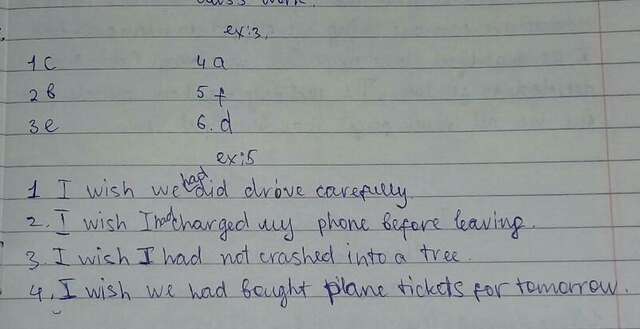 class work.
ex:3.
1 c 4 a
2 b 5 f
3 e 6. d
ex:5
1 I wish we had did drove carefully
2. I wish I had charged my phone before leaving.
3. I wish I had not crashed into a tree.
4. I wish we had bought plane tickets for tomorrow.